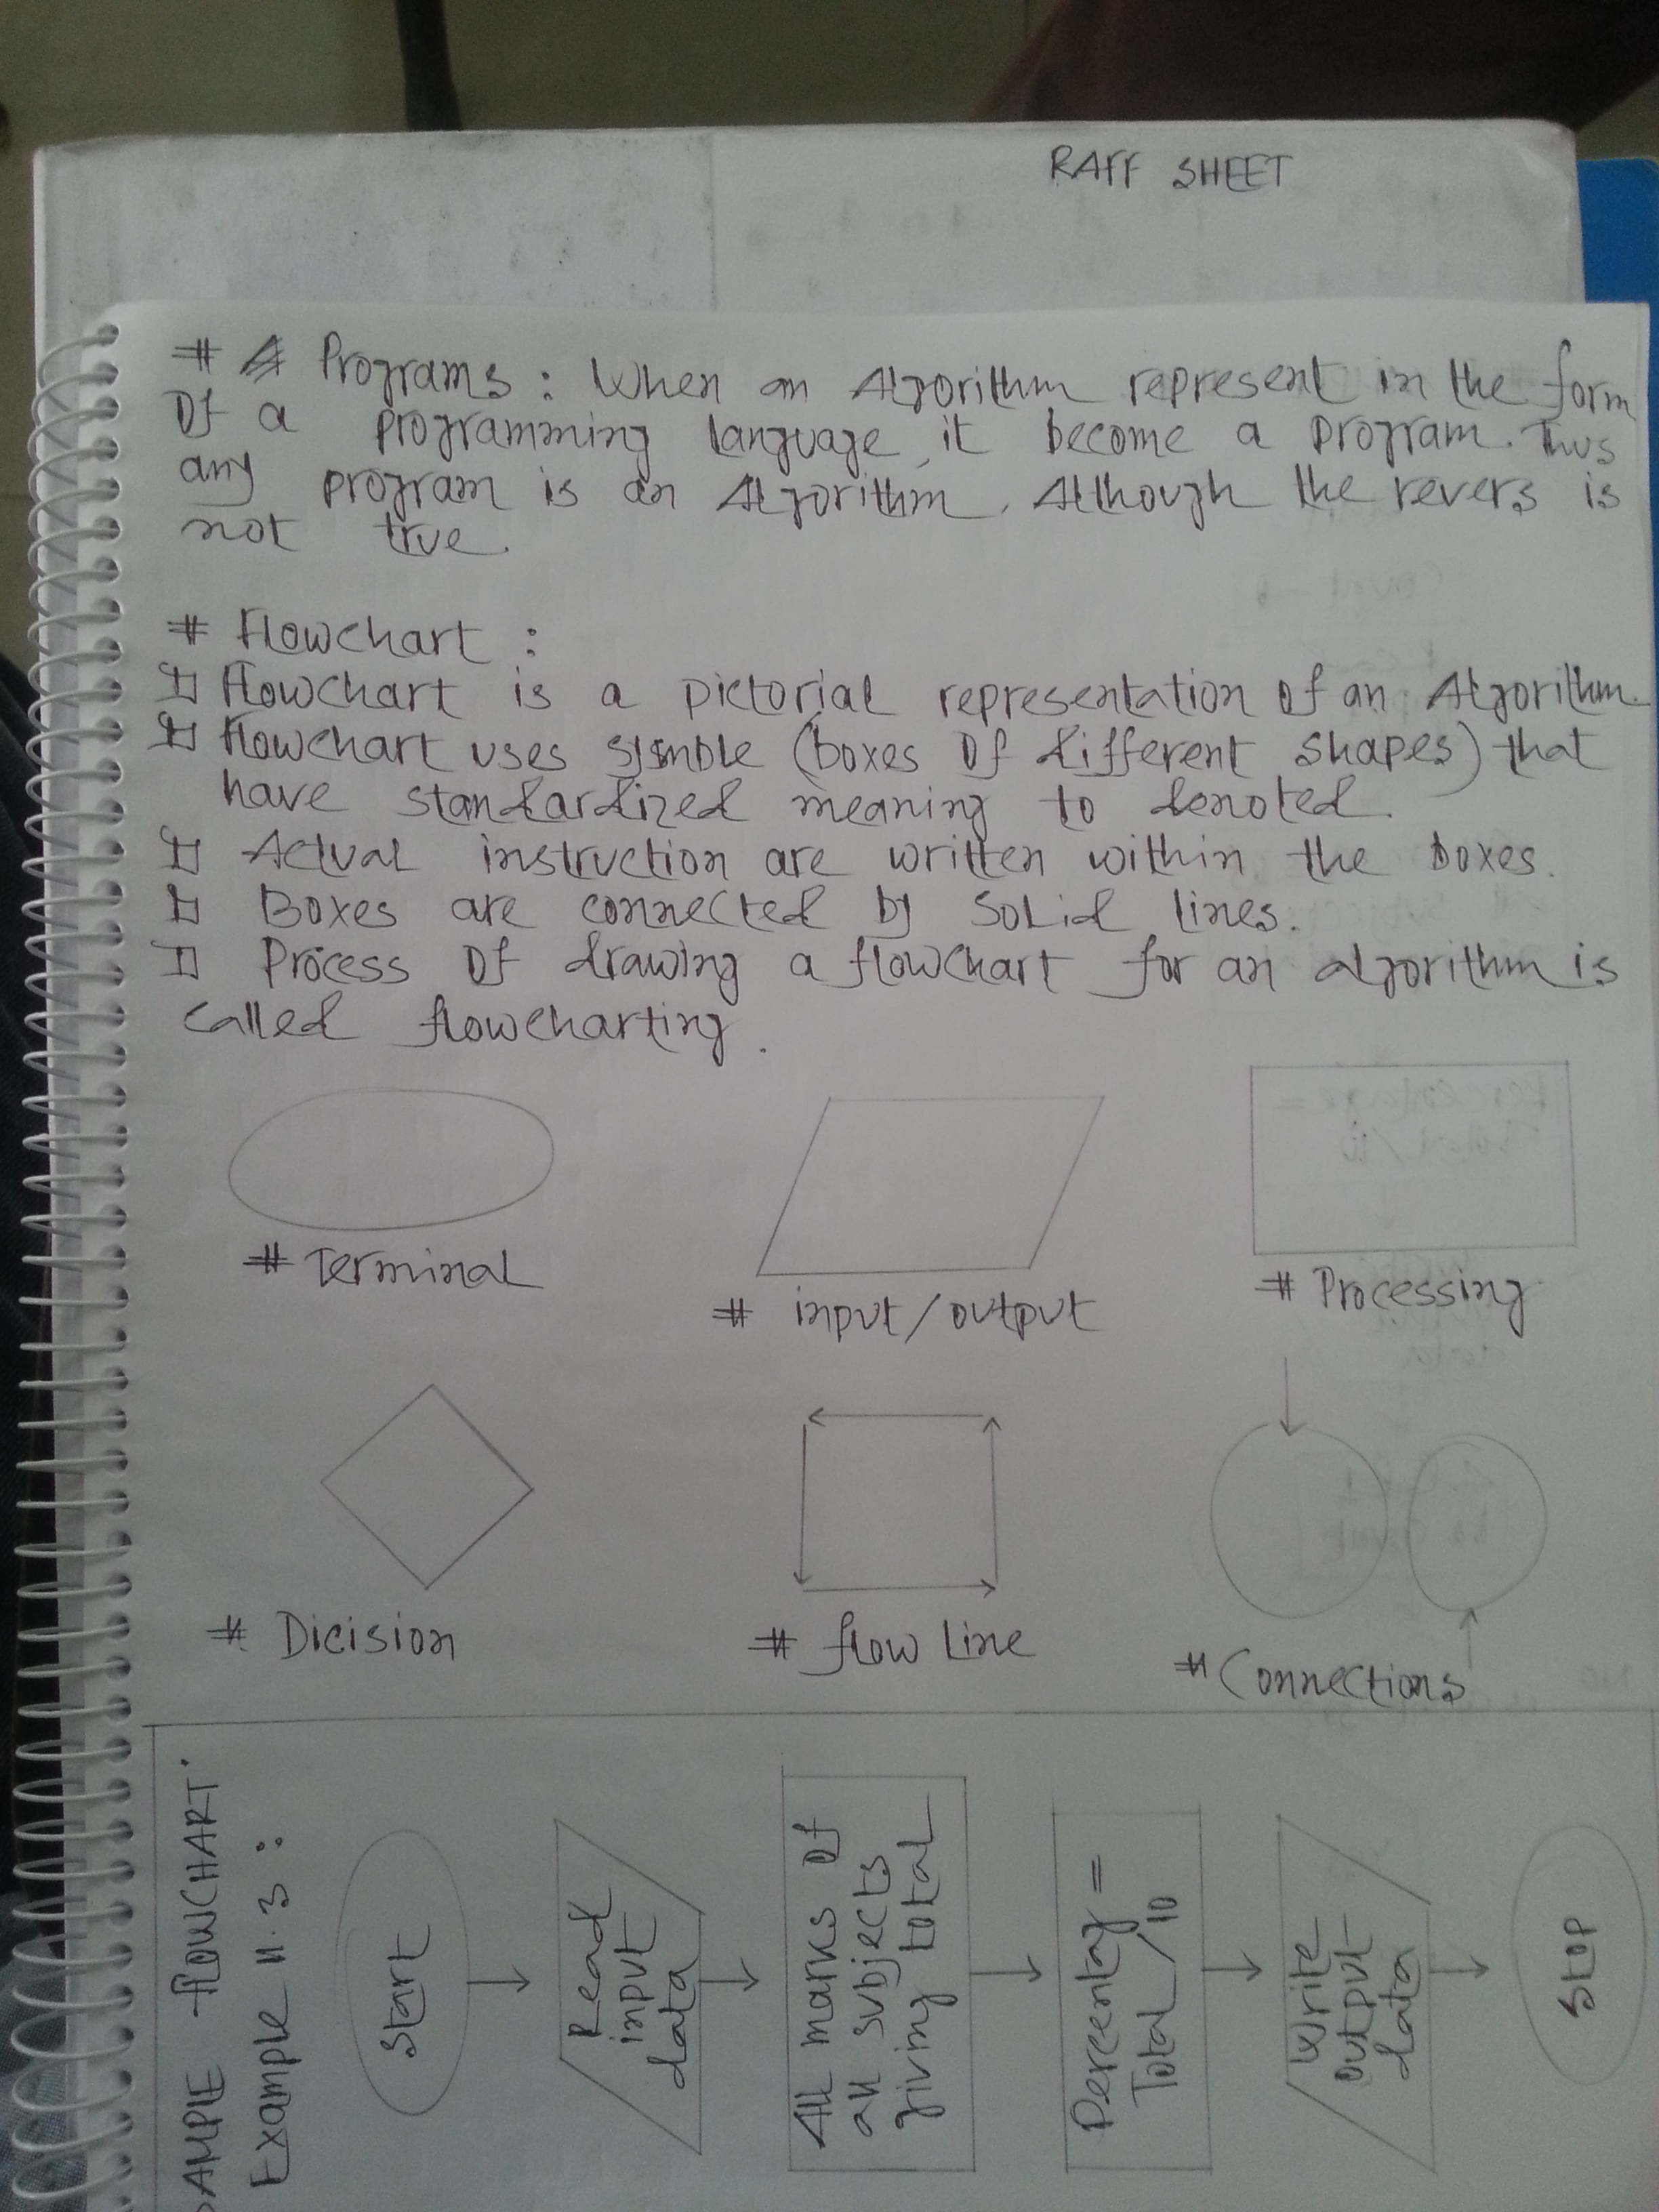 RAFF SHEET
# Programs : When an Algorithm represent in the form
Of a programming language, it become a program. Thus
any program is an Algorithm. Although the revers is
not true.
# Flowchart :
Flowchart is a pictorial representation of an Algorithm.
Flowchart uses symble (boxes of different shapes) that
have standardized meaning to denoted.
Actual instruction are written within the boxes.
Boxes are connected by solid lines.
Process of drawing a flowchart for an algorithm is
called flowcharting.
# Terminal
# input/output
# Processing
# Dicision
# flow line
# Connections
AMPLE FLOWCHART
Example 11.3 :
Start
Read
input
data
All marks of
all subjects
giving total
Percentag =
Total/10
Write
output
data
Stop